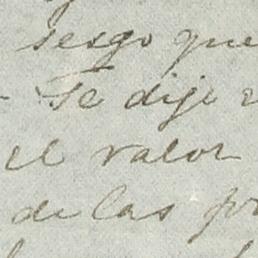 sesgo que
Te dije
el valor
de las